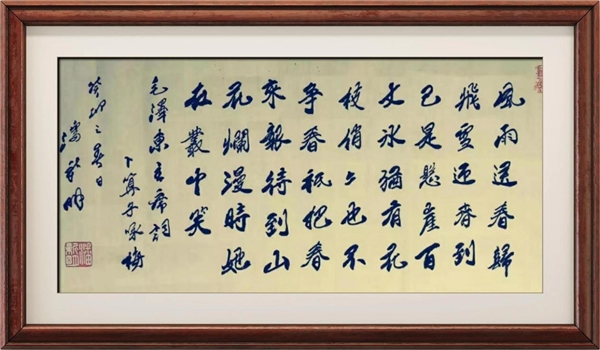 風雨送春歸
飛雪迎春到
已是懸崖百
丈冰猶有花
枝俏々也不
争春祇把春
來報待到山
花爛漫時她
在叢中笑
毛澤東主席詞
卜算子咏梅
癸卯之春日